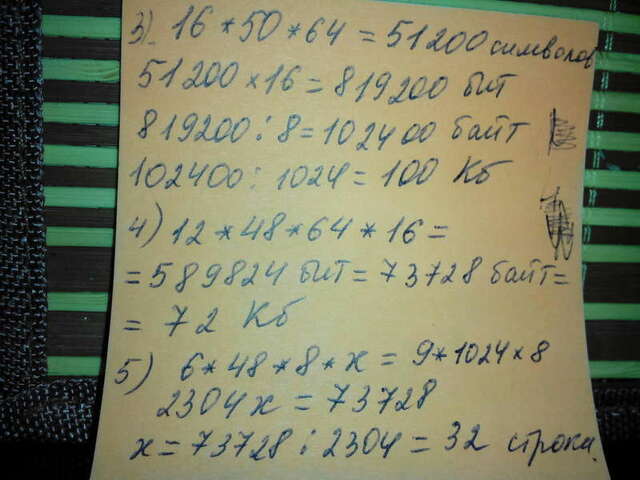 3). 16 * 50 * 64 = 51200 символов
51200 × 16 = 819200 бит
819200 : 8 = 102400 байт
102400 : 1024 = 100 Кб
4) 12 * 48 * 64 * 16 =
= 589824 бит = 73728 байт =
= 72 Кб
5) 6 * 48 * 8 * х = 9 * 1024 * 8
2304х = 73728
х = 73728 : 2304 = 32 строки.